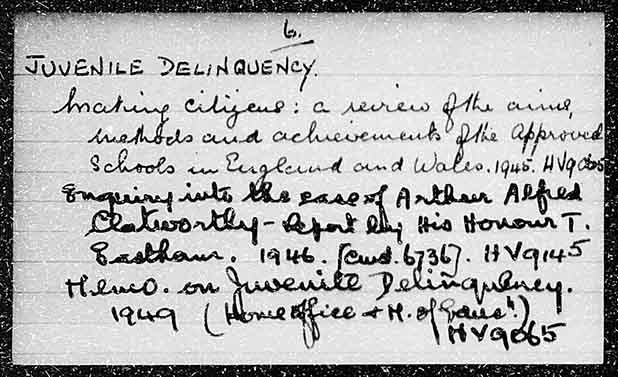 6.
JUVENILE DELINQUENCY.
Making citizens: a review of the aims,
methods and achievements of the Approved
Schools in England and Wales. 1945. HV9065
Enquiry into the case of Arthur Alfred
Clatworthy - Report by His Honour T.
Eastham. 1946. [Cmd. 6736]. HV9145
Memo. on Juvenile Delinquency.
1949 (Home Office & M. of Educn.)
HV9065